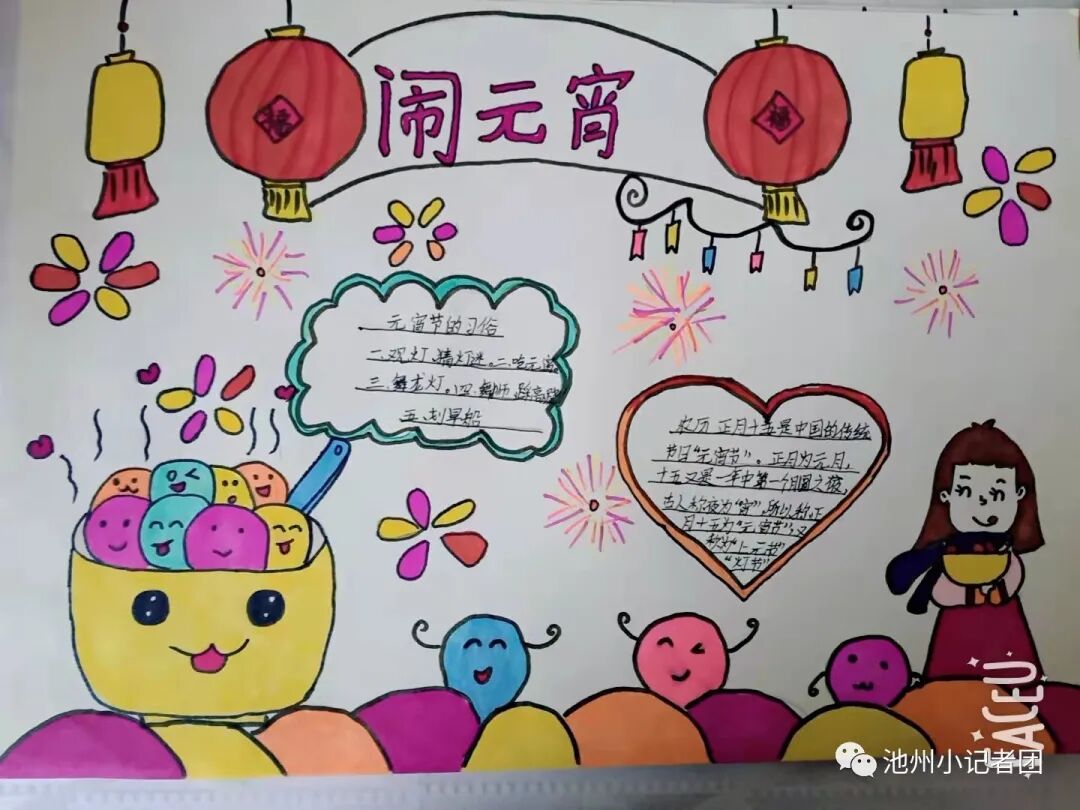 闹元宵
福
福
元宵节的习俗
一、观灯、猜灯谜。二、吃元宵
三、舞龙灯。四、舞狮、踩高跷
五、划旱船
农历 正月十五是中国的传统
节日“元宵节”。正月为元月,
十五又是一年中第一个月圆之夜,
古人称夜为“宵”,所以称正
月十五为“元宵节”,又
称为“上元节”
“灯节”
FACEU
池州小记者团